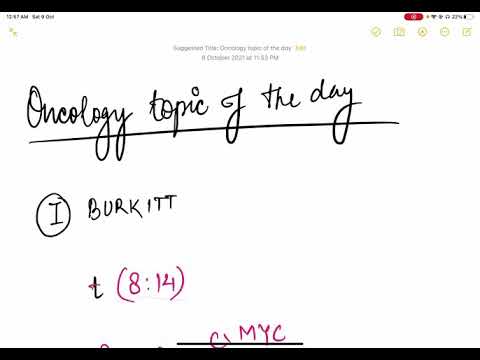 12:57 AM Sat 9 Oct
22%
Suggested Title: Oncology topic of the day Edit
8 October 2021 at 11:53 PM
Oncology topic of the day
I BURKITT
t (8:14)
MYC